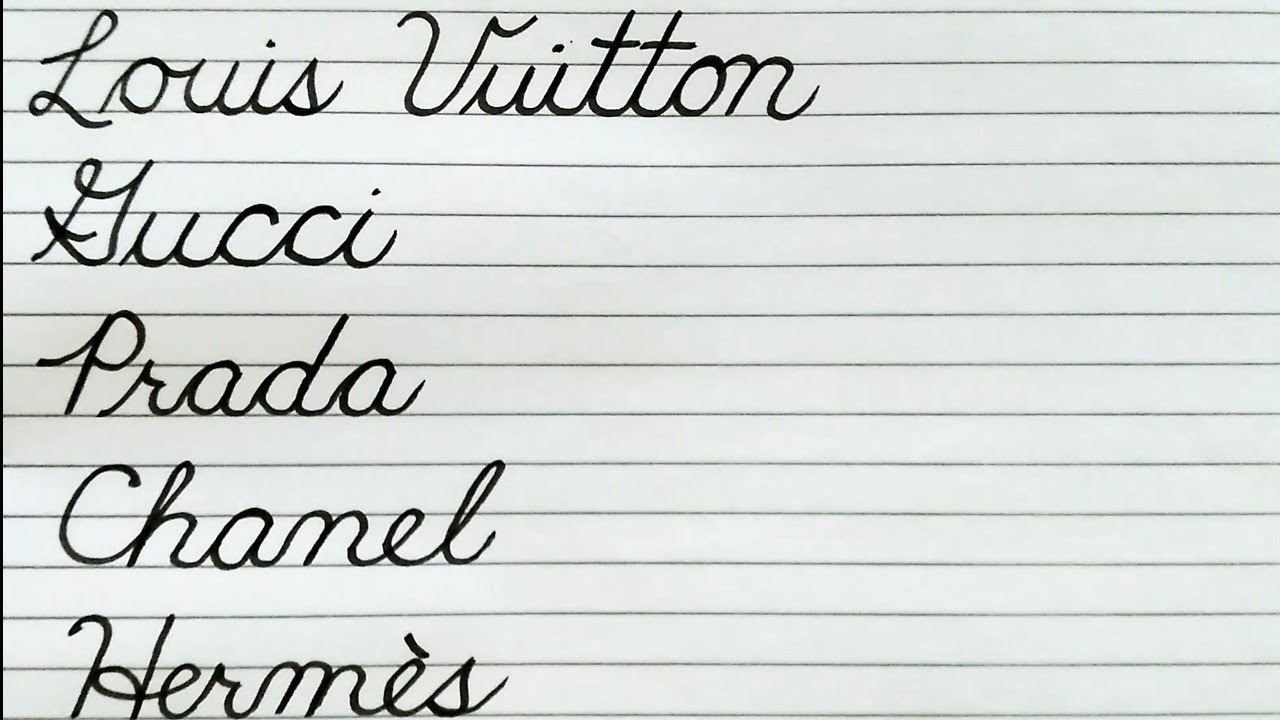 Louis Vuitton
Gucci
Prada
Chanel
Hermès